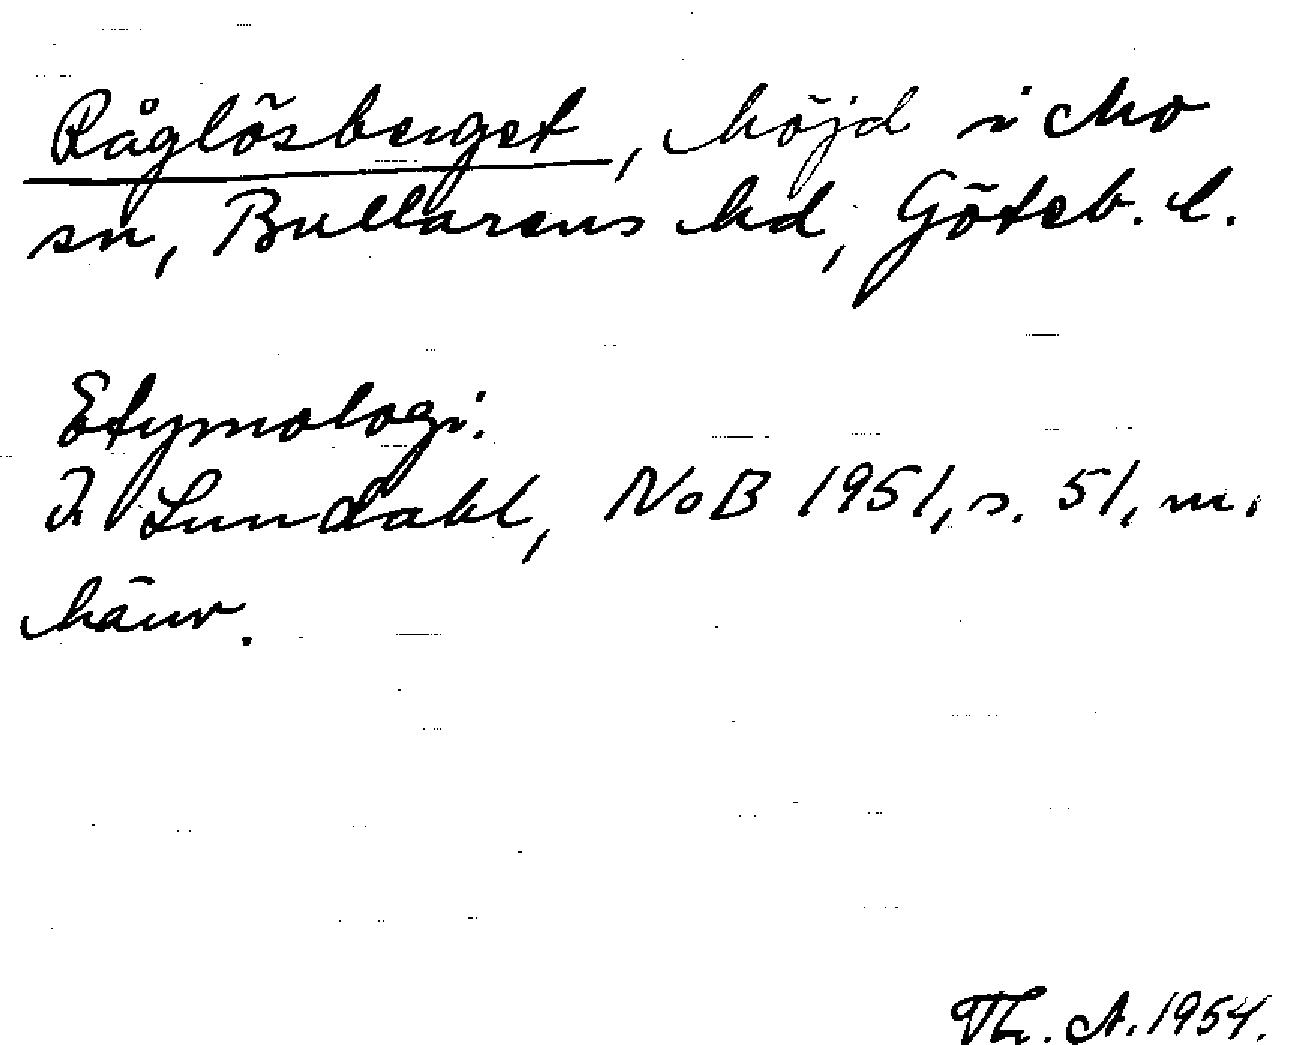 Råglösberget, höjd i Mo
sn, Bullarens hd, Göteb. l.
Etymologi:
I Lundahl, NoB 1951, s. 51, m.
hänv.
Th. A. 1954.